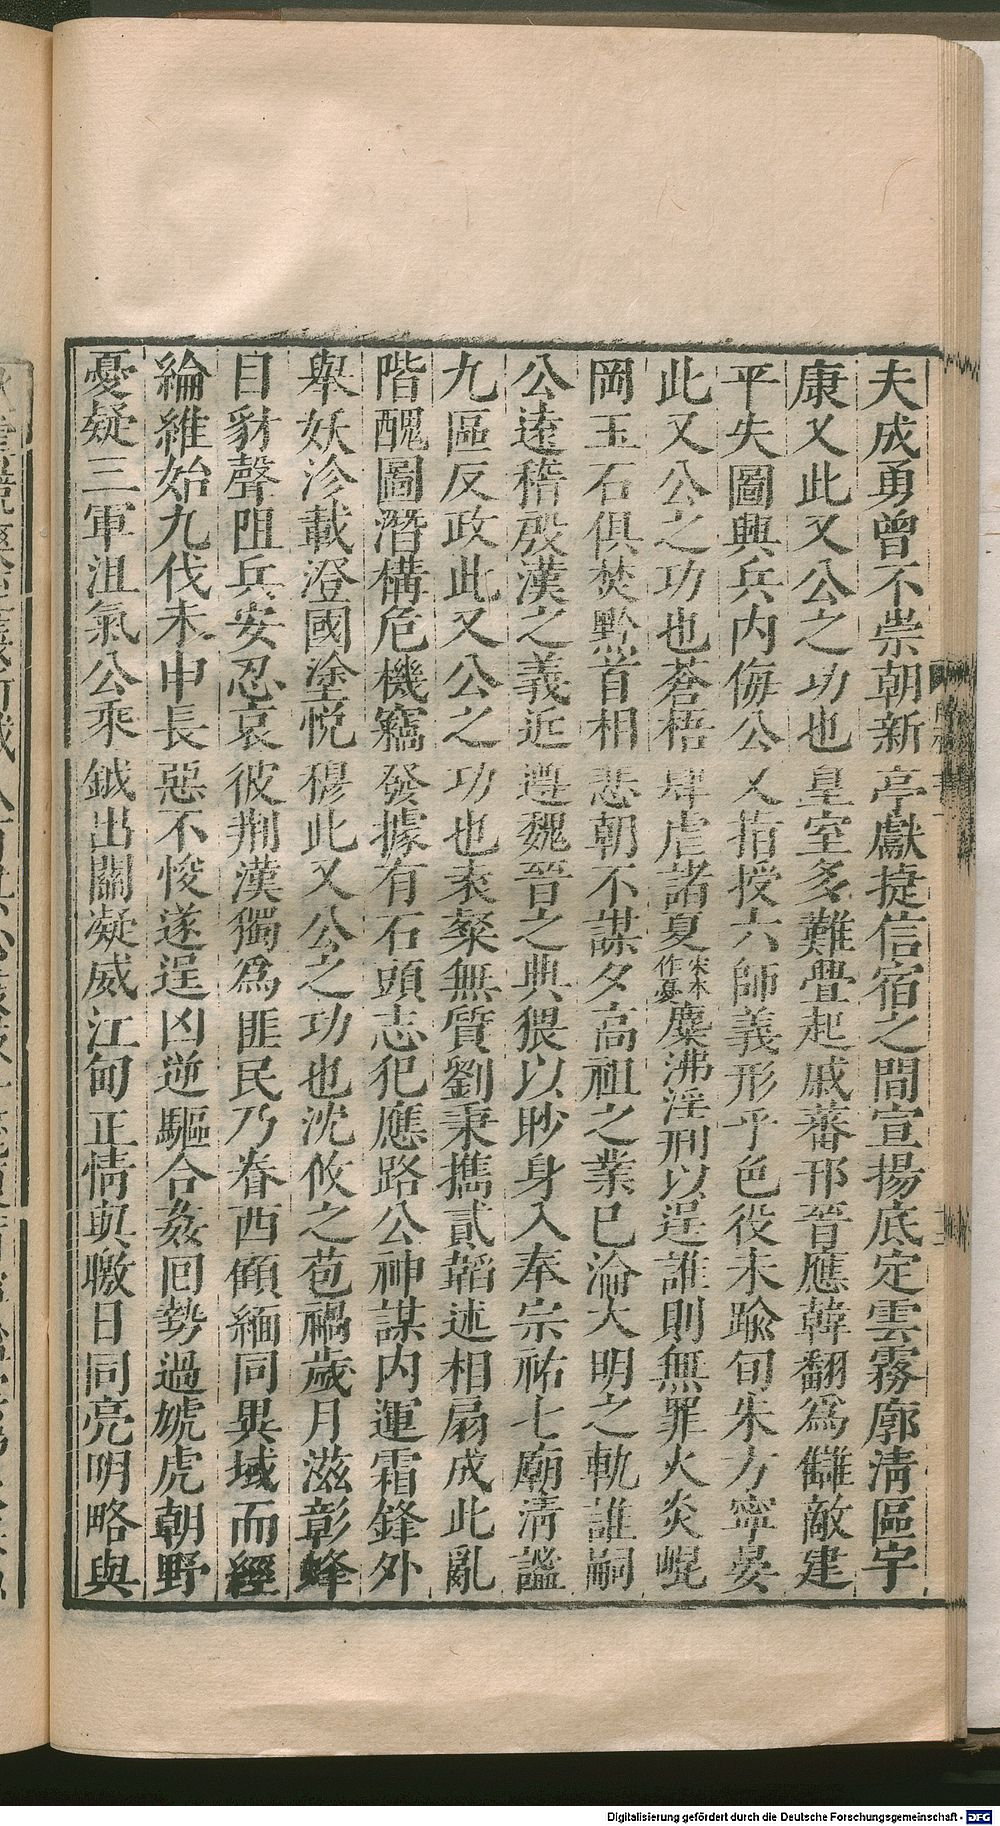 夫成勇曾不崇朝新亭獻捷信宿之間宣揚底定雲霧廓淸區宇
康乂此又公之功也皇室多難舋起戚蕃邗晉應韓翻爲讎敵建
平失圖興兵內侮公又指授六師義形乎色役未踰旬朱方寧晏
此又公之功也蒼梧肆虐諸夏宋本作憂麋沸淫刑以逞誰則無罪火炎崐
岡玉石俱焚黔首相悲朝不謀夕高祖之業已淪大明之軌誰嗣
公遠稽殷漢之義近遵魏晉之典猥以眇身入奉宗祐七廟淸謐
九區反政此又公之功也袁粲無質劉秉攜貳韜述相扇成此亂
階醜圖潛構危機竊發據有石頭志犯應路公神謀內運霜鋒外
舉妖沴載澄國塗悅穆此又公之功也沈攸之苞禍歲月滋彰蜂
目豺聲阻兵安忍哀彼荆漢獨爲匪民乃眷西顧緬同異域而經
綸維始九伐未申長惡不悛遂逞凶逆驅合姦回勢過虓虎朝野
憂疑三軍沮氣公秉鉞出關凝威江甸正情與曒日同亮明略與
Digitalisierung gefördert durch die Deutsche Forschungsgemeinschaft - DFG